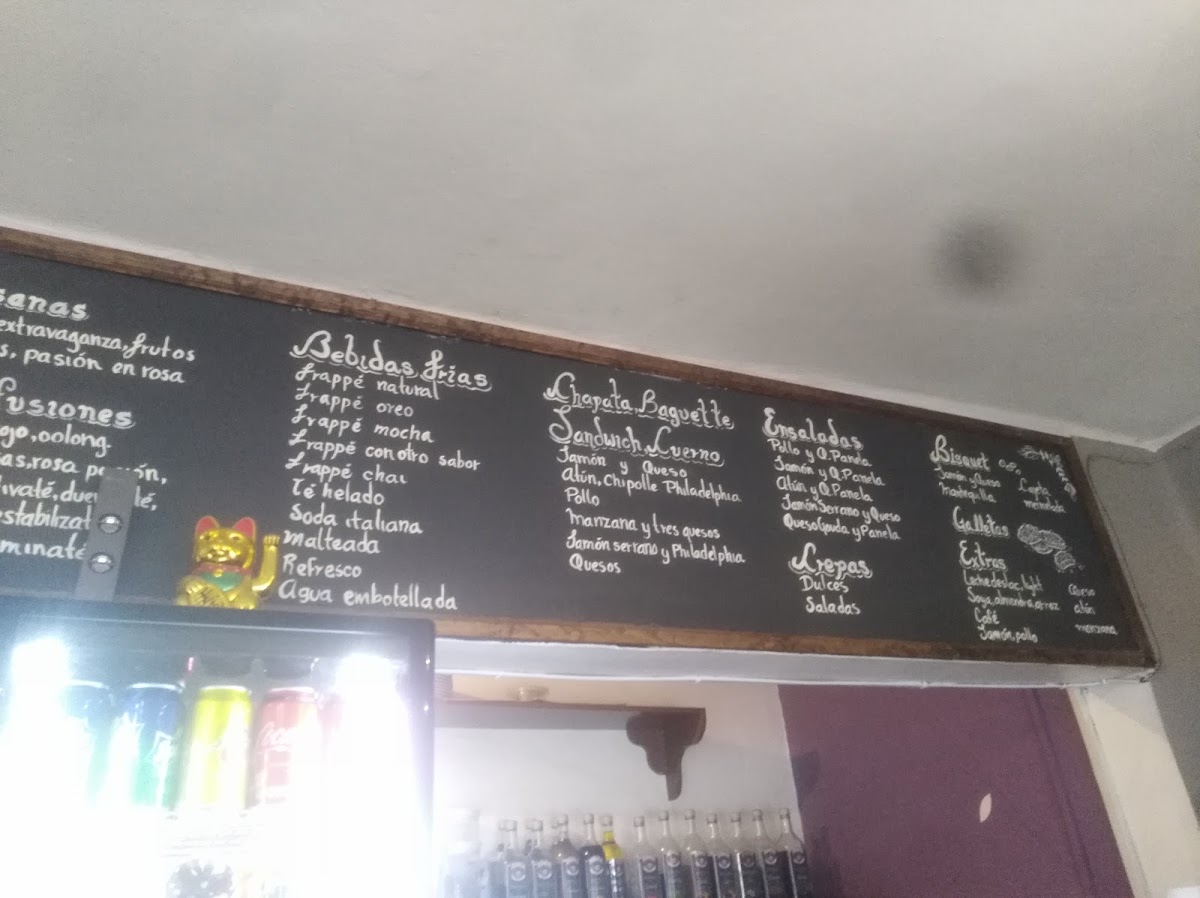 extravaganza, frutos
pasión en rosa
oolong.
rosa
Bebidas frias
frappé natural
frappé oreo
frappé mocha
frappé con otro sabor
frappé chai
Té helado
Soda italiana
Malteada
Refresco
Agua embotellada
Chapata, Baguette
Sandwich, Cuerno
Jamón y Queso
Atún, Chipotle Philadelphia
Pollo
Manzana y tres quesos
Jamón serrano y Philadelphia
Quesos
Ensaladas
Pollo y Q. Panela
Jamón y Q. Panela
Atún y Q. Panela
Jamón Serrano y Queso
Queso Gouda y Panela
Crepas
Dulces
Saladas
Bisquet
Jamón y Queso
Mantequilla
mermelada
Galletas
Extras
Leche deslac, light
Soya, almendra, arroz
Café
Jamón, pollo
Queso
atún
manzana